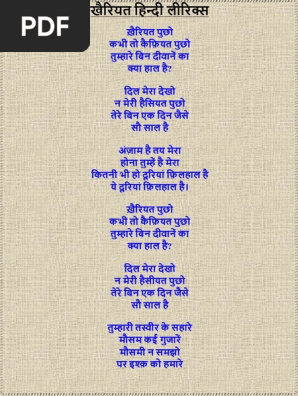 PDF
ख़ैरियत हिन्दी लीरिक्स
ख़ैरियत पुछो
कभी तो कैफ़ियत पुछो
तुम्हारे बिन दीवानें का
क्या हाल है?
दिल मेरा देखो
न मेरी हैसियत पुछो
तेरे बिन एक दिन जैसे
सौ साल है
अंज़ाम है तय मेरा
होना तुम्हें है मेरा
कितनी भी हो दूरियां फ़िलहाल है
ये दूरियां फ़िलहाल है।
ख़ैरियत पुछो
कभी तो कैफ़ियत पुछो
तुम्हारे बिन दीवानें का
क्या हाल है?
दिल मेरा देखो
न मेरी हैसीयत पुछो
तेरे बिन एक दिन जैसे
सौ साल है
तुम्हारी तस्वीर के सहारे
मौसम कई गुजारें
मौसमी न समझो
पर इश्क़ को हमारे